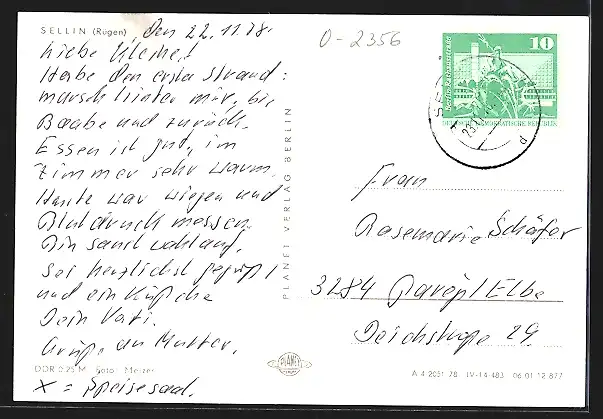 SELLIN (Rügen) den 22.11.78.
Liebe Kleine!
Habe den ersten Strand=
marsch hinter mir, bis
Baabe und zurück.
Essen ist gut, im
Zimmer sehr warm.
Heute war wiegen und
Blutdruck messen.
Bin sonst wohlauf.
Sei herzlichst gegrüßt
und ein Küßchen
Dein Vati.
Grüße an Mutter.
DDR 0,25 M Foto: Melzer
X = Speisesaal.
PLANET VERLAG BERLIN
PLANET
0-2356
10
DEUTSCHE DEMOKRATISCHE REPUBLIK
Frau
Rosemarie Schäfer
3284 Parey/Elbe
Deichstraße 29.
A 4 2051 78 IV-14-483 06 01 12 877